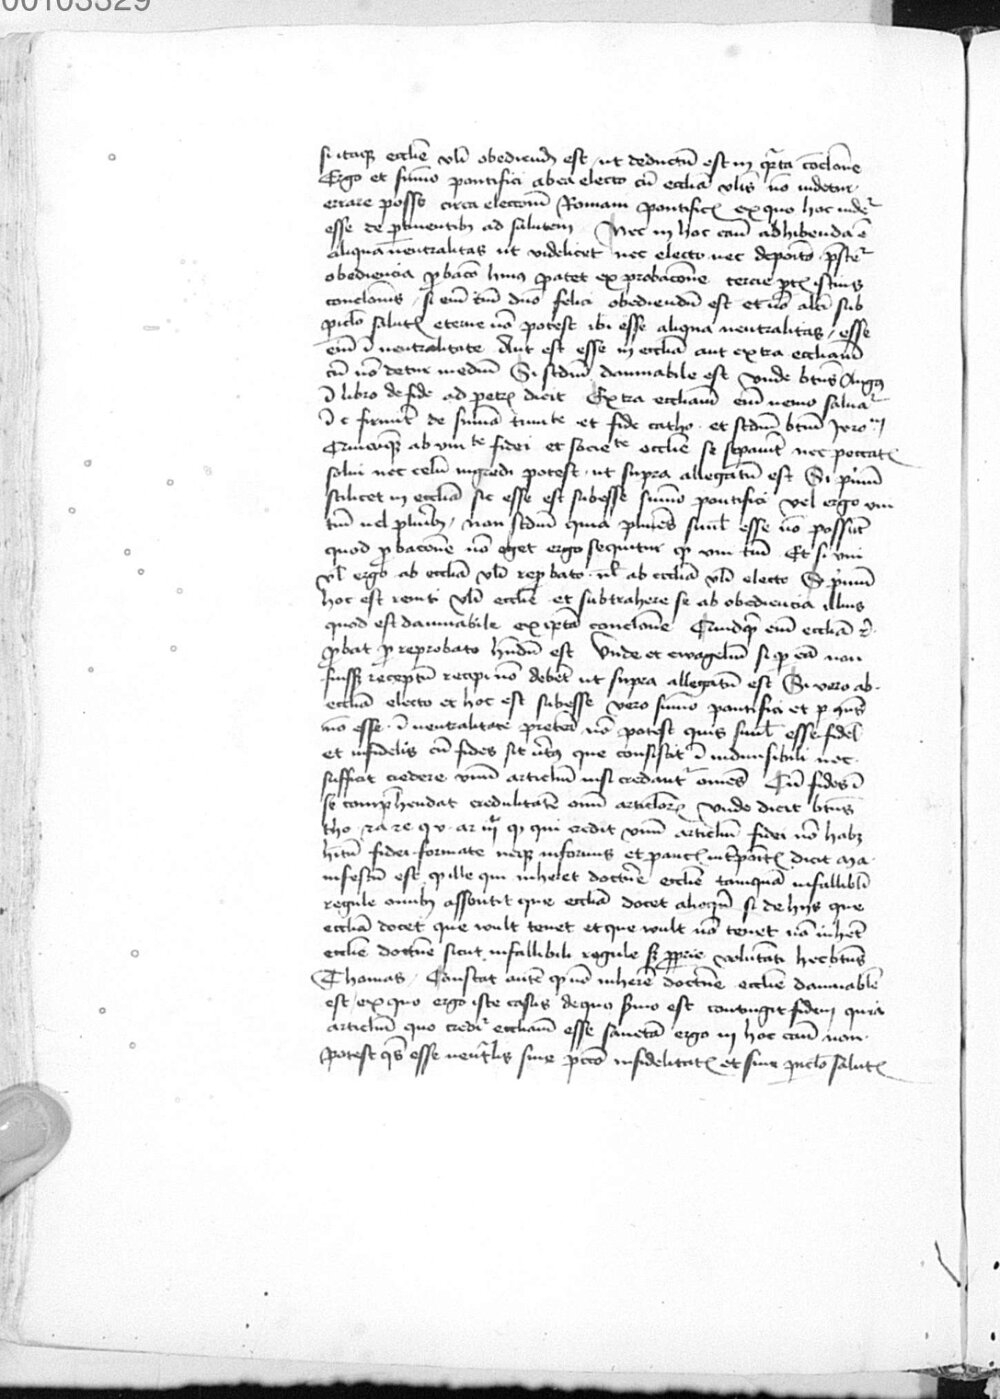 00103329
si itaqz ecclie vli obediend est, ut deductu est in qrta conclone
Ergo et sumo pontifici ab ea electo cu ecclia vlis no videtur
errare posse circa electione Romani pontificis ex quo hoc videt
esse de ptinentibz ad salutem Nec in hoc casu adhibenda e
aliqua neutralitas ut videlicet nec electo nec deposito pstet
obediencia pbaco huius patet ex probacone tercie ptis istius
conclonis, si em tm dno felici obediendu est et no alti sub
piclo salutis eterne no potest ibi esse aliqua neutralitas, esse
em i neutralitate Aut est esse in ecclia aut extra eccliam
cu no detur mediu Si scdm dannabile est Vnde btus Augus
i libro de fide ad petru dicit Extra eccliam em nemo saluat
i c firmit de suma trinite et fide catho. et scdm btm Jero
Cuicuqz ab vnite fidei et societe ecclie se sepauit nec peccatis
solui nec celu ingredi potest, ut supra allegatu est Si pimu
scilicet in ecclia sic esse est subesse sumo pontifici vel ergo vni
tm vel pluribz, non scdm quia plures simul esse no possut
quod pbacone no eget ergo sequitur q vni tm Et si vni
vl ergo ab ecclia vli repbato vl ab ecclia vli electo Si pimu
hoc est reniti vli ecclie et subtrahere se ab obediencia illius
quod est dannabile ex ipta conclone Quidqd em ecclia re
pbat p reprobato hndu est Vnde et ewageliu si q ea non
fuisset receptu recipi no debet ut supra allegatu est Si vero ab
ecclia electo et hoc est subesse vero sumo pontifici et p qns
no esse i neutralitate preterea no potest quis simul esse fidel
et infidelis cu fides sit vtus que consistit i indiuisibili nec
sufficit credere vnu articlum nisi credant omes Cu fides i
se comphendat credulitate oim articlorum Vnde dicit btus
tho. 2a 2e q v. ar iij q qui credit vnu articlum fidei no habz
hitu fidei formate neqz informis et paucis intpositis dicit ma
nifestu est q ille qui inheret doctrine ecclie tamqua infallibli
regule omibz assentit que ecclia docet alioqn si de hijs que
ecclia docet que wult tenet et que wult no tenet no inheret
ecclie doctrine sicut infallibili regule sz pprie voluntati hec btus
Thomas, Constat aute q no inherere doctrine ecclie dannable
est, ex quo ergo iste casus de quo smo est contingit fidem quia
articlum quo credit eccliam esse sanctam ergo in hoc casu non
potest qs esse neutralis sine pcco infidelitatis et sine piclo salutis